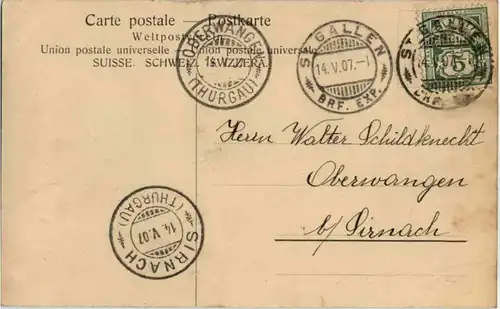 Carte postale — Postkarte
Weltpostverein
Union postale universelle — Unione postale universale
SUISSE. SCHWEIZ. SVIZZERA.
OBERWANGEN
(THURGAU)
ST. GALLEN
14.V.07.-1
BRF. EXP.
ST. GALLEN
14.V.07.-1
BRF. EXP.
5
Herrn Walter Schildknecht
Oberwangen
b/ Sirnach
SIRNACH
14.V.07
(THURGAU)